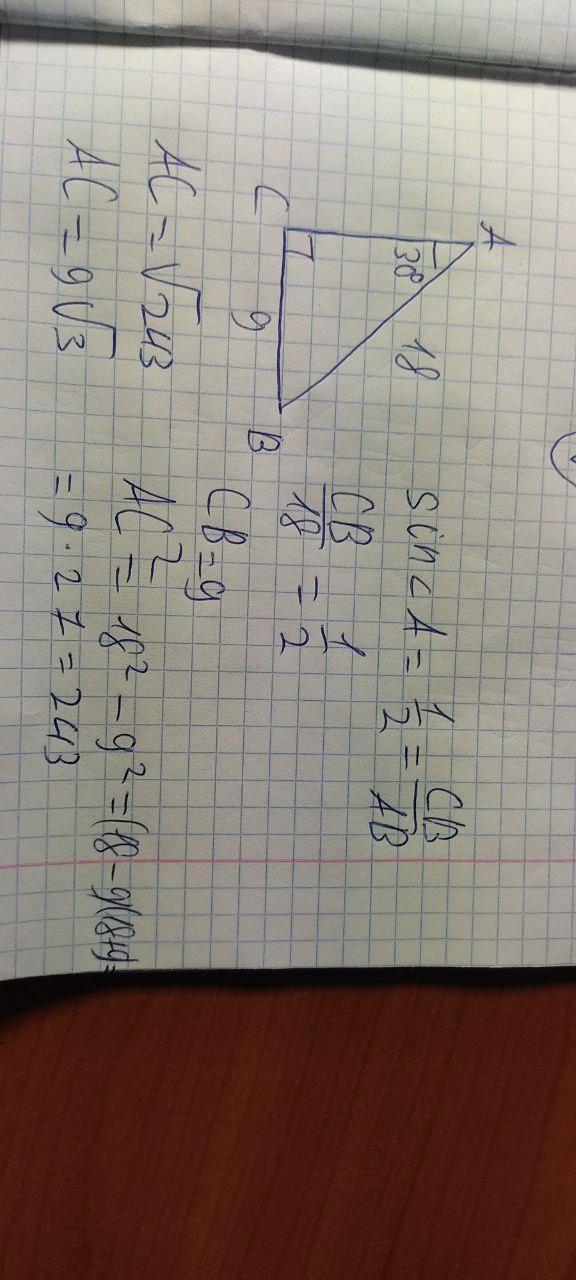 A
30°
18
C
9
B
sin∠A = 1/2 = CB/AB
CB/18 = 1/2
CB = 9
AC² = 18² - 9² = (18 - 9)(18+9) =
= 9 · 27 = 243
AC = √243
AC = 9√3